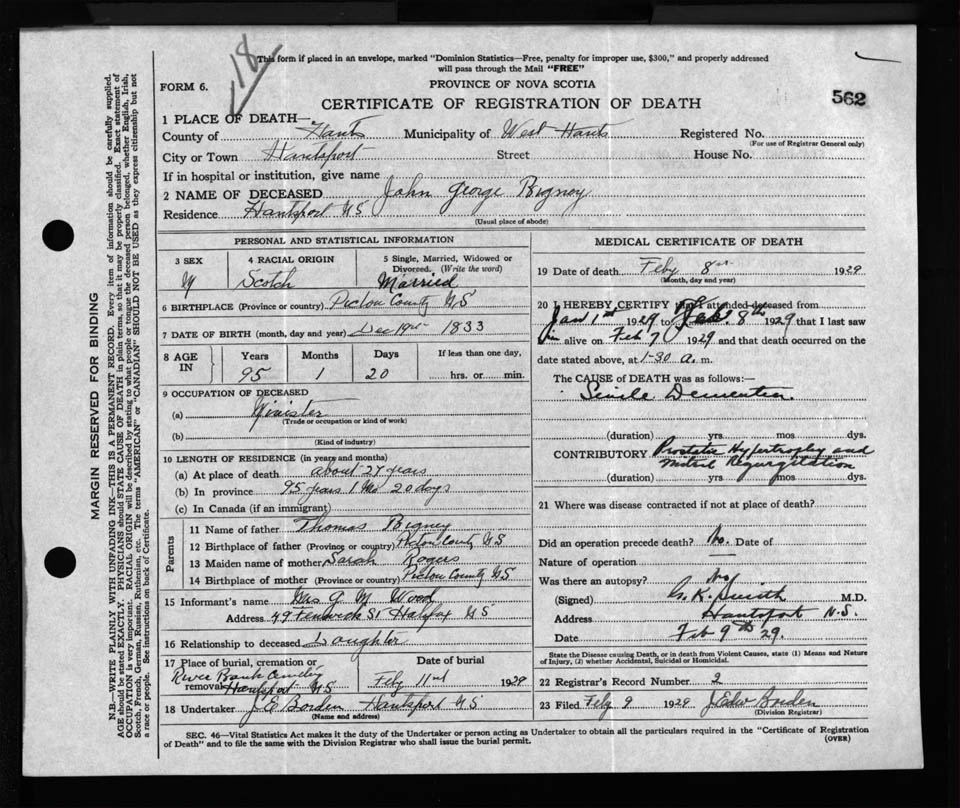 18
This form if placed in an envelope, marked "Dominion Statistics—Free, penalty for improper use, $300," and properly addressed
will pass through the Mail "FREE"
FORM 6.
PROVINCE OF NOVA SCOTIA
562
CERTIFICATE OF REGISTRATION OF DEATH
1 PLACE OF DEATH—
County of Hants Municipality of West Hants Registered No.
(For use of Registrar General only)
City or Town Hantsport Street House No.
If in hospital or institution, give name
2 NAME OF DECEASED John George Bigney
Residence Hantsport N S
(Usual place of abode)
PERSONAL AND STATISTICAL INFORMATION
3 SEX 4 RACIAL ORIGIN 5 Single, Married, Widowed or
Divorced. (Write the word)
M Scotch Married
6 BIRTHPLACE (Province or country) Pictou County N S
7 DATE OF BIRTH (month, day and year) Dec 19 1833
8 AGE IN Years Months Days If less than one day,
95 1 20 hrs. or min.
9 OCCUPATION OF DECEASED
(a) Minister
(Trade or occupation or kind of work)
(b)
(Kind of industry)
10 LENGTH OF RESIDENCE (in years and months)
(a) At place of death about 27 years
(b) In province 95 years 1 Mo 20 days
(c) In Canada (if an immigrant)
Parents
11 Name of father Thomas Bigney
12 Birthplace of father (Province or country) Pictou County N S
13 Maiden name of mother Sarah Rogers
14 Birthplace of mother (Province or country) Pictou County N S
15 Informant's name Mrs G M Wood
Address 49 Fenwick St Halifax N S
16 Relationship to deceased Daughter
17 Place of burial, cremation or Date of burial
River Bank Cemetery
removal Hantsport N S Feby 11th 1929
18 Undertaker J E Borden Hantsport N S
(Name and address)
MEDICAL CERTIFICATE OF DEATH
19 Date of death Feby 8 1929
(Month, day and year)
20 I HEREBY CERTIFY that I attended deceased from
Jan 1st 1929 to Feb. 8th 1929 that I last saw
him alive on Feb 7 1929 and that death occurred on the
date stated above, at 1-30 a. m.
The CAUSE of DEATH was as follows:—
Senile Dementia
(duration) yrs. mos dys.
CONTRIBUTORY Prostatic Hypertrophy and
Mitral Regurgitation
(duration) yrs mos dys.
21 Where was disease contracted if not at place of death?
Did an operation precede death? No. Date of
Nature of operation
Was there an autopsy? No
(Signed) Smith M.D.
Address Hantsport N.S.
Date Feb 9th 29.
State the Disease causing Death, or in death from Violent Causes, state (1) Means and Nature
of Injury, (2) whether Accidental, Suicidal or Homicidal.
22 Registrar's Record Number 2
23 Filed Feby 9 1929 J Edw Borden
(Division Registrar)
SEC. 46—Vital Statistics Act makes it the duty of the Undertaker or person acting as Undertaker to obtain all the particulars required in the "Certificate of Registration
of Death" and to file the same with the Division Registrar who shall issue the burial permit.
(OVER)
MARGIN RESERVED FOR BINDING
N.B.—WRITE PLAINLY WITH UNFADING INK—THIS IS A PERMANENT RECORD. Every item of information should be carefully supplied.
AGE should be stated EXACTLY. PHYSICIANS should STATE CAUSE OF DEATH in plain terms, so that it may be properly classified. Exact statement of
OCCUPATION is very important. RACIAL ORIGIN will be described by stating to what people or tongue the deceased person belonged, whether English, Irish,
Scotch, French, German, Russian, Ruthenian, etc. The terms "AMERICAN" or "CANADIAN" SHOULD NOT BE USED as they express citizenship but not
a race or people. See instructions on back of Certificate.